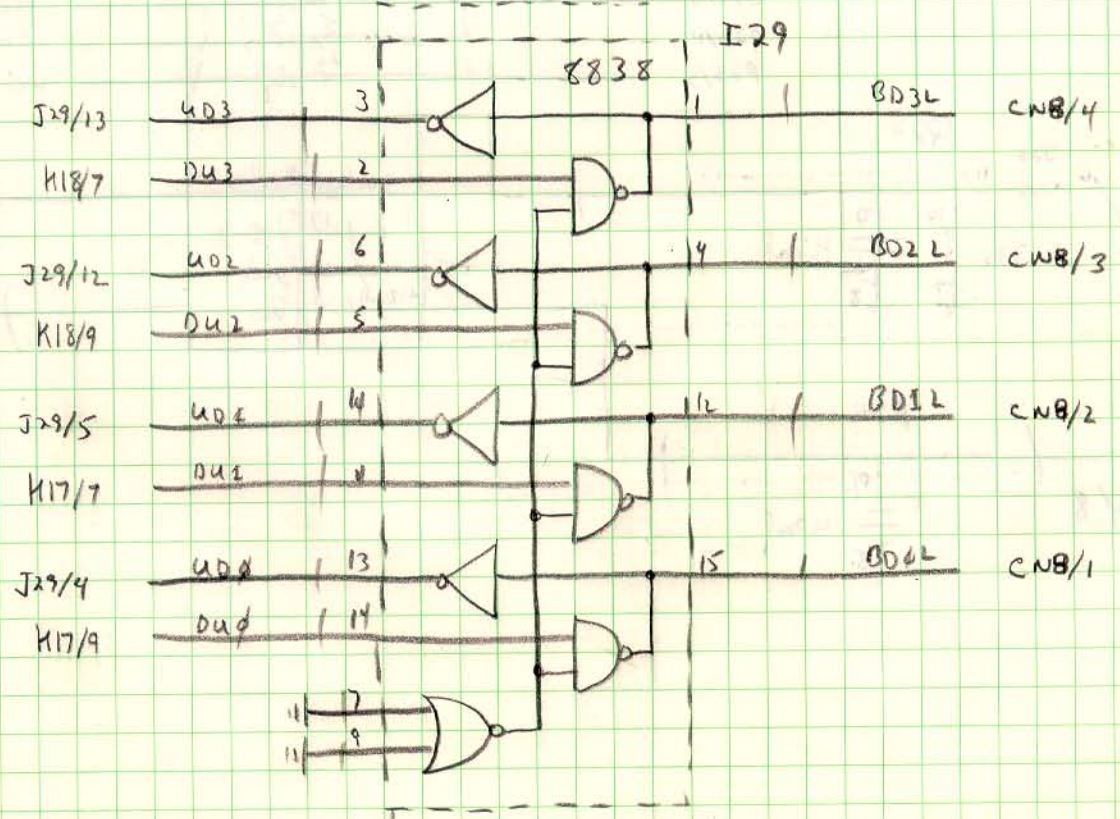 I29
8838
J29/13 UD3 3 1 BD3L CN8/4
H18/7 DU3 2
J29/12 UD2 6 4 BD2L CN8/3
H18/9 DU2 5
J29/5 UD1 12 BD1L CN8/2
H17/7 DU1
J29/4 UD0 13 15 BD0L CN8/1
H17/9 DU0 14
7
9